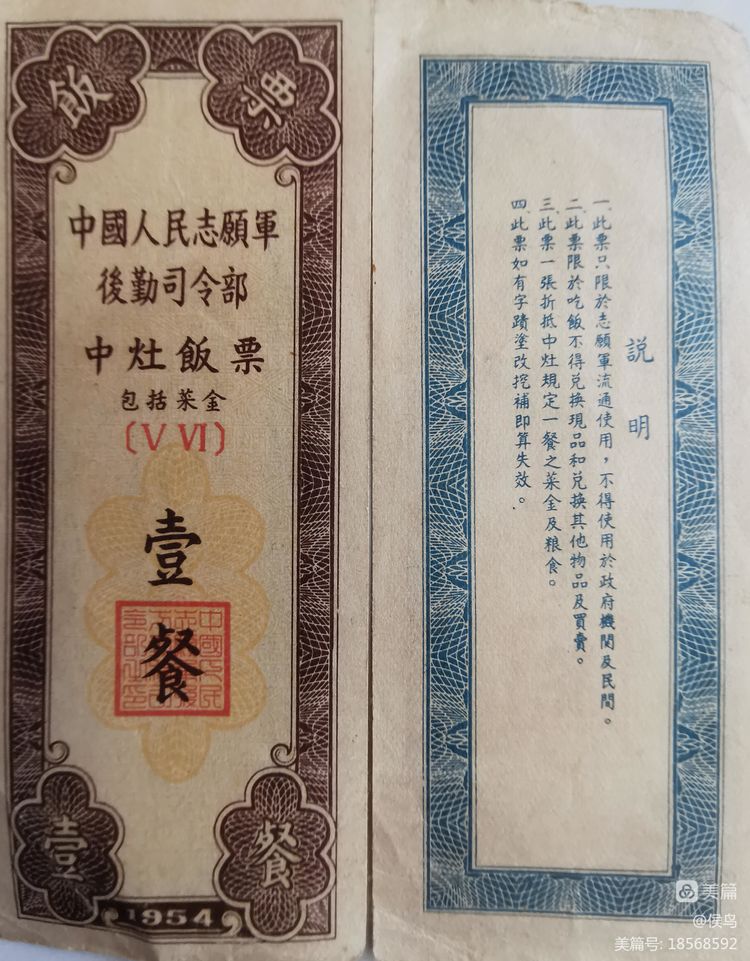 飯票
中國人民志願軍
後勤司令部
中灶飯票
包括菜金
〔V VI〕
壹
餐
壹餐
1954
説明
一、此票只限於志願軍流通使用，不得使用於政府機関及民間。
二、此票限於吃飯不得兑换現品和兑换其他物品及買賣。
三、此票一張折抵中灶規定一餐之菜金及粮食。
四、此票如有字蹟塗改挖補即算失效。
美篇
@侯鸟
美篇号: 18568592